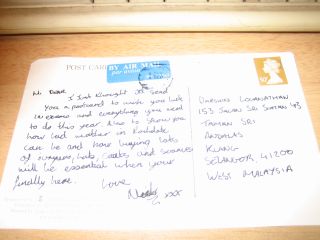 POST CARD
BY AIR MAIL
par avion
Hi
I just thought I'd send
You a postcard to wish you luck
in exams and everything you need
to do this year. Also to show you
how bad weather in Rochdale
can be and how buying lots
of jumpers, hats, coats and scarves
will be essential when your
finally here.
Love
xxx
LOGANATHAN
153 JALAN SRI SIANTAN 43
TAMAN SRI
ANDALAS
KLANG
SELANGOR, 41200
WEST MALAYSIA